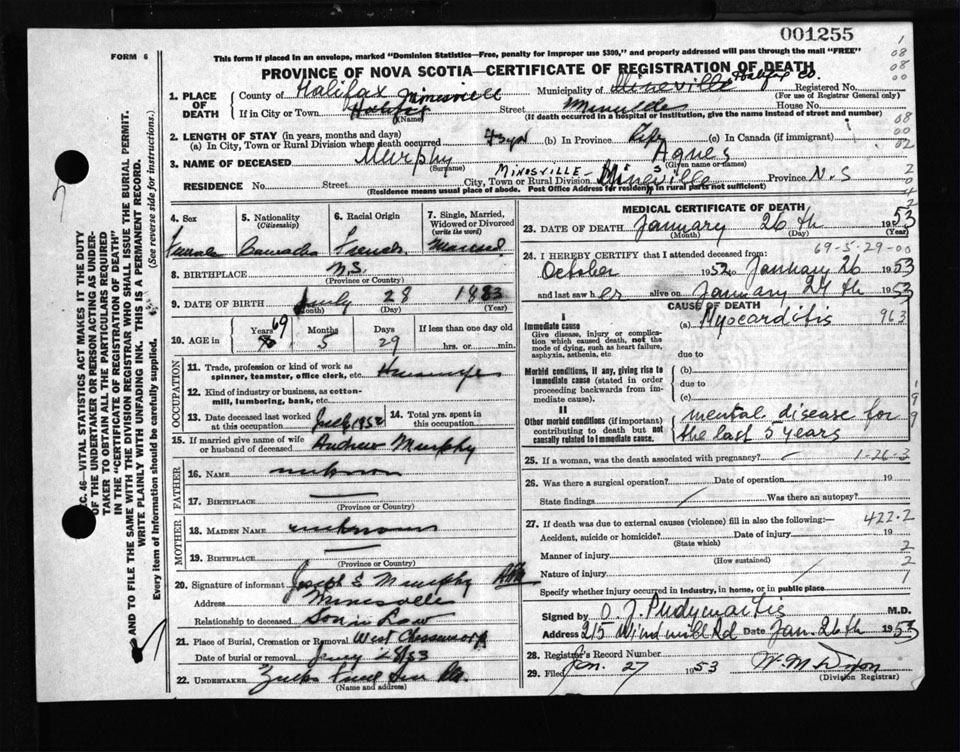 001255
FORM 6
This form if placed in an envelope, marked "Dominion Statistics—Free, penalty for improper use $300," and properly addressed will pass through the mail "FREE"
PROVINCE OF NOVA SCOTIA—CERTIFICATE OF REGISTRATION OF DEATH
1. PLACE OF DEATH
County of Halifax Minesville Municipality of Mineville Halifax Co. Registered No.
(For use of Registrar General only)
If in City or Town Halifax Street House No.
(Name) (If death occurred in a hospital or institution, give the name instead of street and number)
2. LENGTH OF STAY (in years, months and days)
(a) In City, Town or Rural Division where death occurred (b) In Province Life (c) In Canada (if immigrant)
3. NAME OF DECEASED Murphy Agnes
(Surname) (Given name or names)
RESIDENCE No. Street MINOSVILLE- City, Town or Rural Division Mineville Province N.S
(Residence means usual place of abode. Post Office Address for residents in rural parts not sufficient)
C. 46—VITAL STATISTICS ACT MAKES IT THE DUTY
OF THE UNDERTAKER OR PERSON ACTING AS UNDER-
TAKER TO OBTAIN ALL THE PARTICULARS REQUIRED
IN THE "CERTIFICATE OF REGISTRATION OF DEATH"
AND TO FILE THE SAME WITH THE DIVISION REGISTRAR WHO SHALL ISSUE THE BURIAL PERMIT.
WRITE PLAINLY WITH UNFADING INK. THIS IS A PERMANENT RECORD.
Every item of Information should be carefully supplied. (See reverse side for instructions.)
4. Sex
Female
5. Nationality
(Citizenship)
Canadian
6. Racial Origin
French
7. Single, Married,
Widowed or Divorced
(write the word)
Married
8. BIRTHPLACE N.S.
(Province or Country)
9. DATE OF BIRTH July 28 1883
(Month) (Day) (Year)
10. AGE in
Years 69 Months 5 Days 29 If less than one day old
hrs. or min.
OCCUPATION
11. Trade, profession or kind of work as
spinner, teamster, office clerk, etc. Housewife
12. Kind of industry or business, as cotton-
mill, lumbering, bank, etc.
13. Date deceased last worked
at this occupation July 1952
14. Total yrs. spent in
this occupation
15. If married give name of wife
or husband of deceased Andrew Murphy
FATHER
16. NAME unknown
17. BIRTHPLACE —
(Province or Country)
MOTHER
18. MAIDEN NAME unknown
19. BIRTHPLACE —
(Province or Country)
20. Signature of informant Joseph S Murphy
Address Minesville
Relationship to deceased son in Law
21. Place of Burial, Cremation or Removal West Chezzetcook
Date of burial or removal 28/53
22. UNDERTAKER
(Name and address)
MEDICAL CERTIFICATE OF DEATH
23. DATE OF DEATH January 26 th 1953
(Month) (Day)
69-5-29-00
24. I HEREBY CERTIFY that I attended deceased from:
October 1952 to January 26 1953
and last saw her alive on January 24 th 1953
CAUSE OF DEATH
I
Immediate cause (a) Myocarditis 963
Give disease, injury or complica-
tion which caused death, not the
mode of dying, such as heart failure,
asphyxia, asthenia, etc.
due to
Morbid conditions, if any, giving rise to
immediate cause (stated in order
proceeding backwards from im-
mediate cause).
(b)
due to
(c)
II
Other morbid conditions (if important)
contributing to death but not
causally related to immediate cause.
mental disease for
the last 5 years
25. If a woman, was the death associated with pregnancy? 1-26-3
26. Was there a surgical operation? Date of operation 19
State findings Was there an autopsy?
27. If death was due to external causes (violence) fill in also the following:— 422.2
Accident, suicide or homicide? Date of injury 19
(State which)
Manner of injury 2
(How sustained)
Nature of injury
Specify whether injury occurred in industry, in home, or in public place
Signed by O. J. Pudymaitis M.D.
Address 215 Windmill Rd Date Jan. 26th 1953
28. Registrar's Record Number
29. Filed Jan. 27 1953 W. M. Dixon
(Division Registrar)